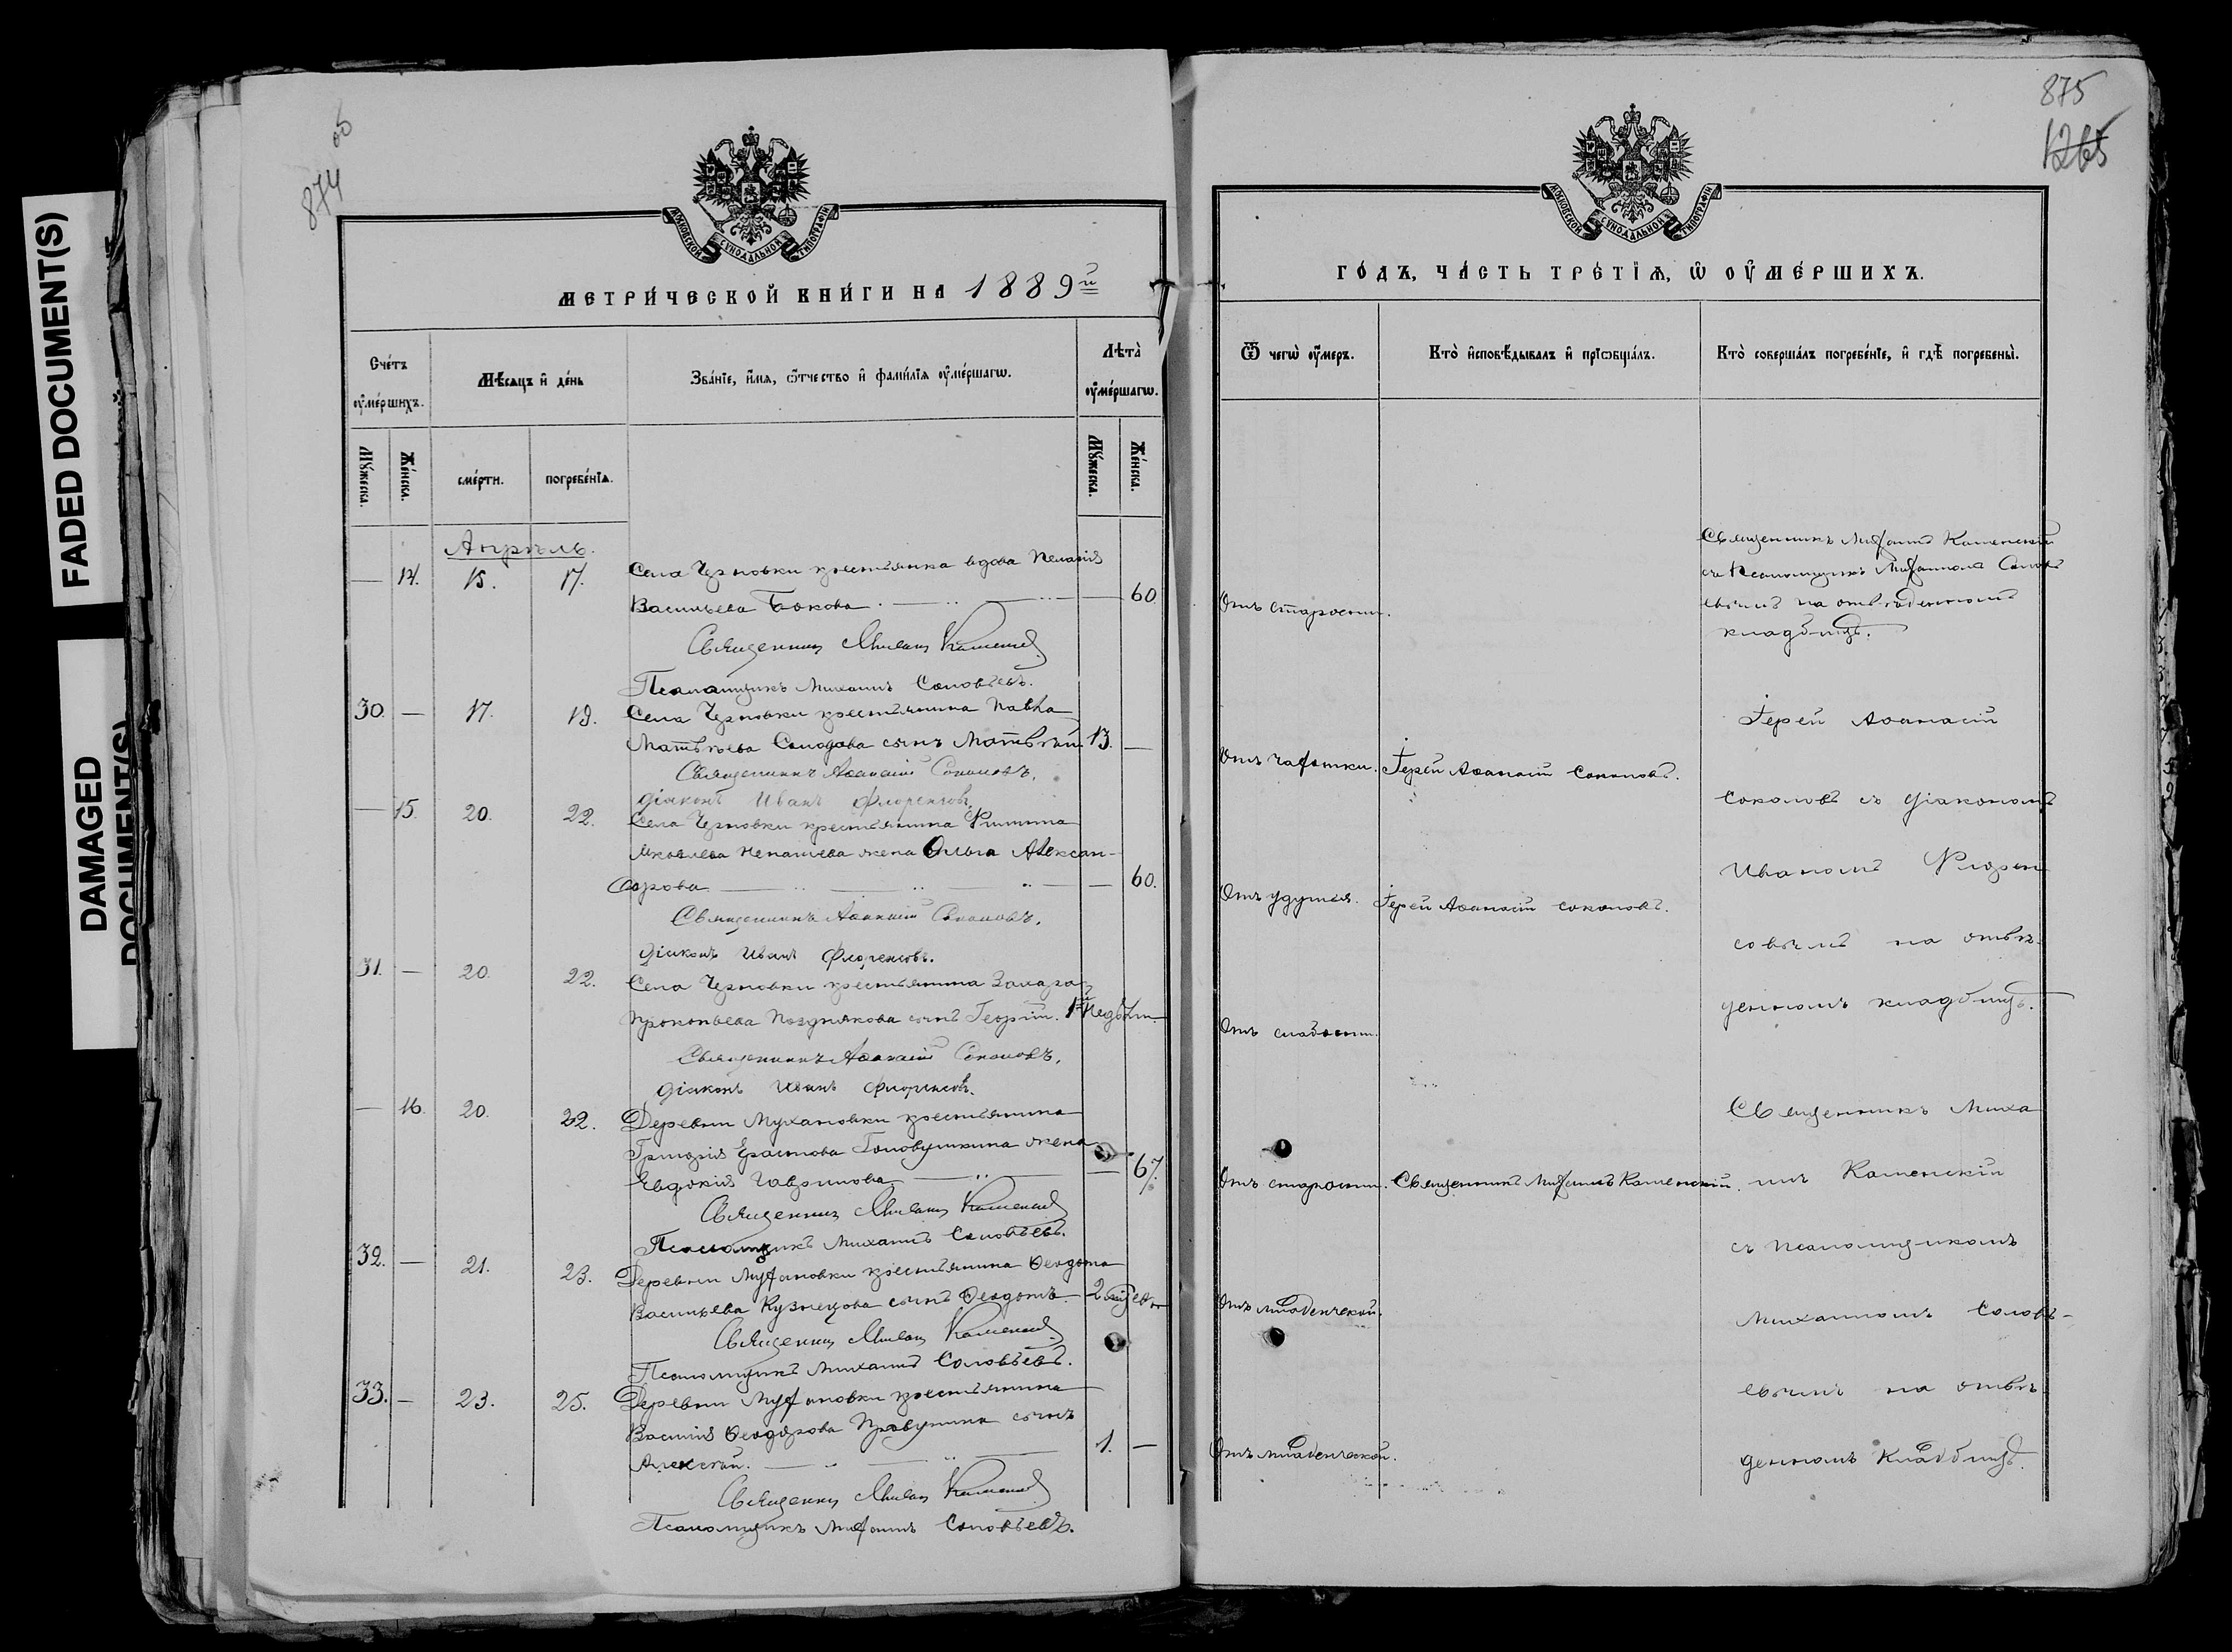 FADED DOCUMENT(S)
DAMAGED
DOCUMENT(S)
874
об
МОСКОВСКОЙ СѴНОДАЛЬНОЙ ТИПОГРАФІИ
МЕТРИ́ЧЕСКОЙ КНИ́ГИ НА 1889й
Сче́тъ
ᲂу҆ме́ршихъ.
Мѣ́сяцъ и҆ де́нь
Зва́нїе, и҆́мѧ, ѻ҆́тчество и҆ фамѝлїѧ ᲂу҆ме́ршагѡ.
Лѣ́та
ᲂу҆ме́ршагѡ.
Мꙋ́жеска.
Же́нска.
сме́рти.
погребе́нїѧ.
Мꙋ́жеска.
Же́нска.
Апрѣль.
— 14. 15. 17. Села Черновки крестьянка вдова Пелагія
Васильева Бокова. — — 60
Священникъ Михаилъ Каменскій
Псаломщикъ Михаилъ Соловьевъ.
30. — 17. 19. Села Черновки крестьянина Павла
Матвѣева Солодова сынъ Матвѣй 13. —
Священникъ Аѳанасій Соколовъ.
Діаконъ Иванъ Флоренсовъ.
— 15. 20. 22. Села Черновки крестьянина Филиппа
Яковлева жена Ольга Алексан-
дрова — — 60.
Священникъ Аѳанасій Соколовъ.
Діаконъ Иванъ Флоренсовъ.
31. — 20. 22. Села Черновки крестьянина Захара
Прокопьева Позднякова сынъ Георгій. 1 недѣли.
Священникъ Аѳанасій Соколовъ.
Діаконъ Иванъ Флоренсовъ.
— 16. 20. 22. Деревни Мухановки крестьянина
Григорія Ерастова Головушкина жена
Евдокія Гаврилова — — 67.
Священникъ Михаилъ Каменскій
Псаломщикъ Михаилъ Соловьевъ.
32. — 21. 23. Деревни Мухановки крестьянина Ѳеодота
Васильева Кузнецова сынъ Ѳеодотъ 2
Священникъ Михаилъ Каменскій
Псаломщикъ Михаилъ Соловьевъ.
33. — 23. 25. Деревни Мухановки крестьянина
Василія Ѳеодорова сынъ
Алексѣй. — — 1. —
Священникъ Михаилъ Каменскій
Псаломщикъ Михаилъ Соловьевъ.
875
1265
МОСКОВСКОЙ СѴНОДАЛЬНОЙ ТИПОГРАФІИ
ГО́ДЪ, ЧА́СТЬ ТРЕ́ТЇѦ, Ѡ҆ ОУ҆МЕ́РШИХЪ.
Ѿ чегѡ̀ ᲂу҆́меръ.
Кто̀ и҆сповѣ́дывалъ и҆ прїѡбща́лъ.
Кто̀ соверша́лъ погребе́нїе, и҆ гдѣ̀ погребены̀.
Отъ старости.
Священникъ Михаилъ Каменскій
съ Псаломщикомъ Михаиломъ Соловь
евымъ на отведенномъ
кладбищѣ.
Отъ чахотки. Іерей Аѳанасій Соколовъ.
Іерей Аѳанасій
Соколовъ съ діакономъ
Отъ удушья. Іерей Аѳанасій Соколовъ.
Иваномъ Флорен
совымъ на отве-
Отъ слабости.
денномъ кладбищѣ.
Отъ старости. Священникъ Михаилъ Каменскій.
Священникъ Миха
илъ Каменскій
съ псаломщикомъ
Отъ младенческой.
Михаиломъ Соловь-
евымъ на отве-
Отъ младенческой.
денномъ кладбищѣ.